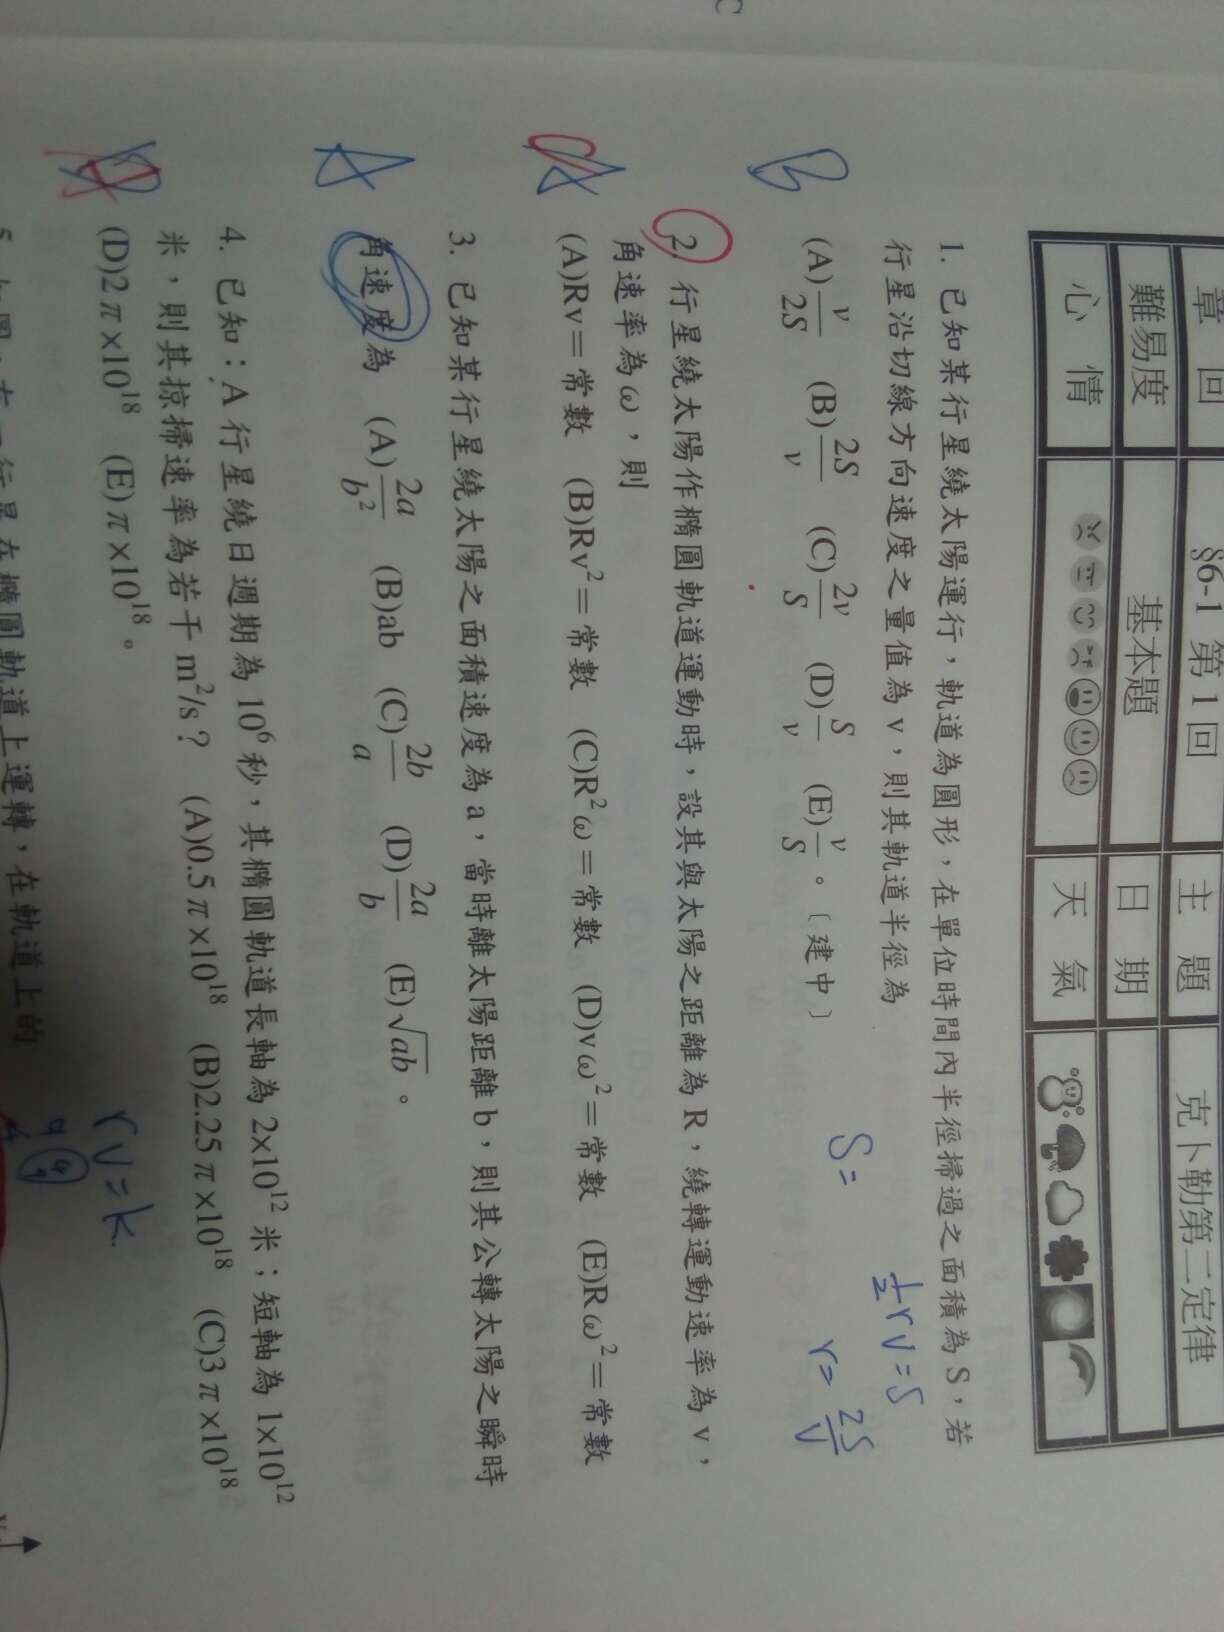 章 回 §6-1 第1回 主 題 克卜勒第二定律
難易度 基本題 日 期
心 情 天 氣
1. 已知某行星繞太陽運行，軌道為圓形，在單位時間內半徑掃過之面積為 S，若
行星沿切線方向速度之量值為 v，則其軌道半徑為
(A) v/2S (B) 2S/v (C) 2v/S (D) S/v (E) v/S 。〔建中〕
B
S=
½rv=S
r= 2S/V
2. 行星繞太陽作橢圓軌道運動時，設其與太陽之距離為 R，繞轉運動速率為 v，
角速率為ω，則
(A)Rv＝常數 (B)Rv²＝常數 (C)R²ω＝常數 (D)vω²＝常數 (E)Rω²＝常數
C A
3. 已知某行星繞太陽之面積速度為 a，當時離太陽距離 b，則其公轉太陽之瞬時
角速度為 (A) 2a/b² (B)ab (C) 2b/a (D) 2a/b (E)√ab 。
A
4. 已知：A 行星繞日週期為 10⁶ 秒，其橢圓軌道長軸為 2×10¹² 米；短軸為 1×10¹²
米，則其掠掃速率為若干 m²/s？ (A)0.5π×10¹⁸ (B)2.25π×10¹⁸ (C)3π×10¹⁸
(D)2π×10¹⁸ (E)π×10¹⁸ 。
rv=k
在橢圓軌道上運轉，在軌道上的